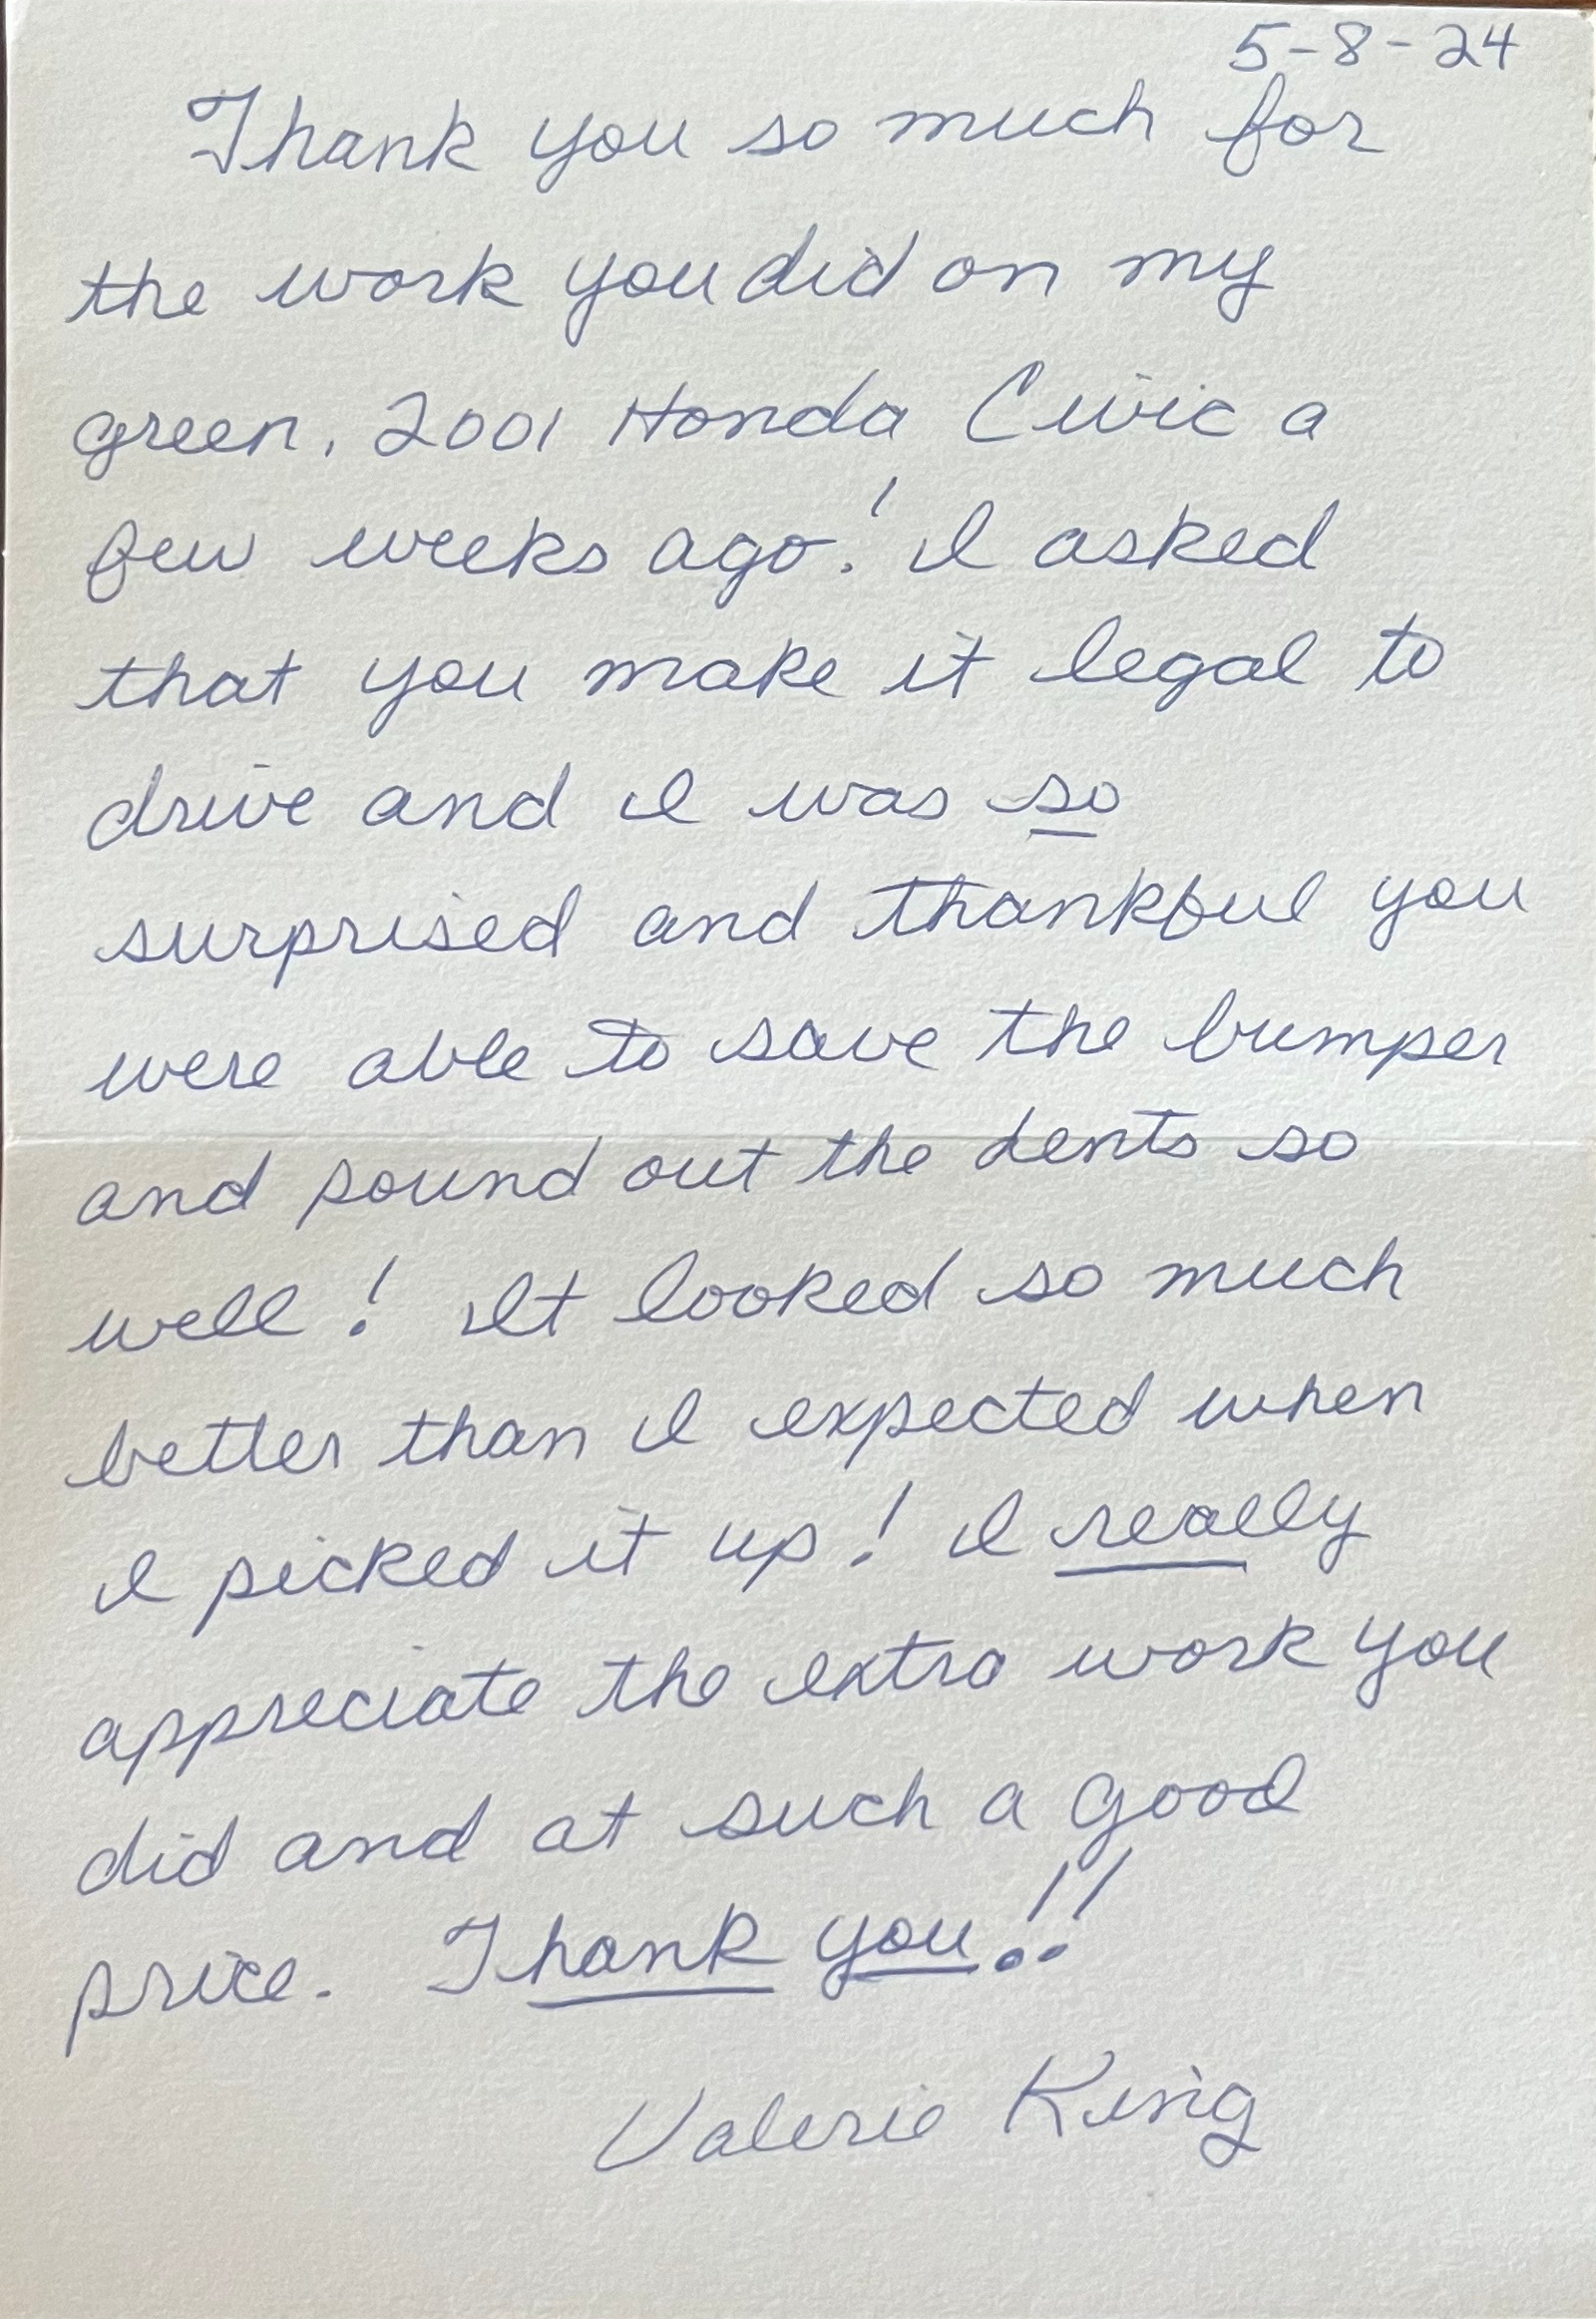 5-8-24
Thank you so much for
the work you did on my
green, 2001 Honda Civic a
few weeks ago! I asked
that you make it legal to
drive and I was so
surprised and thankful you
were able to save the bumper
and pound out the dents so
well! It looked so much
better than I expected when
I picked it up! I really
appreciate the extra work you
did and at such a good
price. Thank you!!
Valerie King